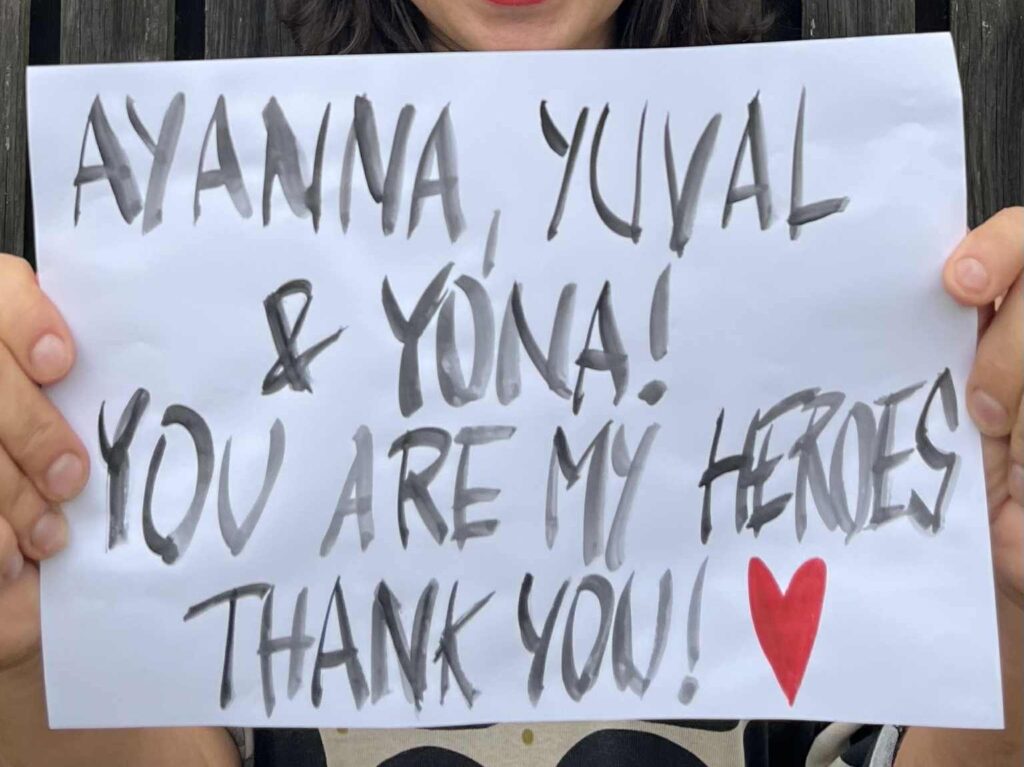 AYANNA, YUVAL
& YONA!
YOU ARE MY HEROES
THANK YOU!